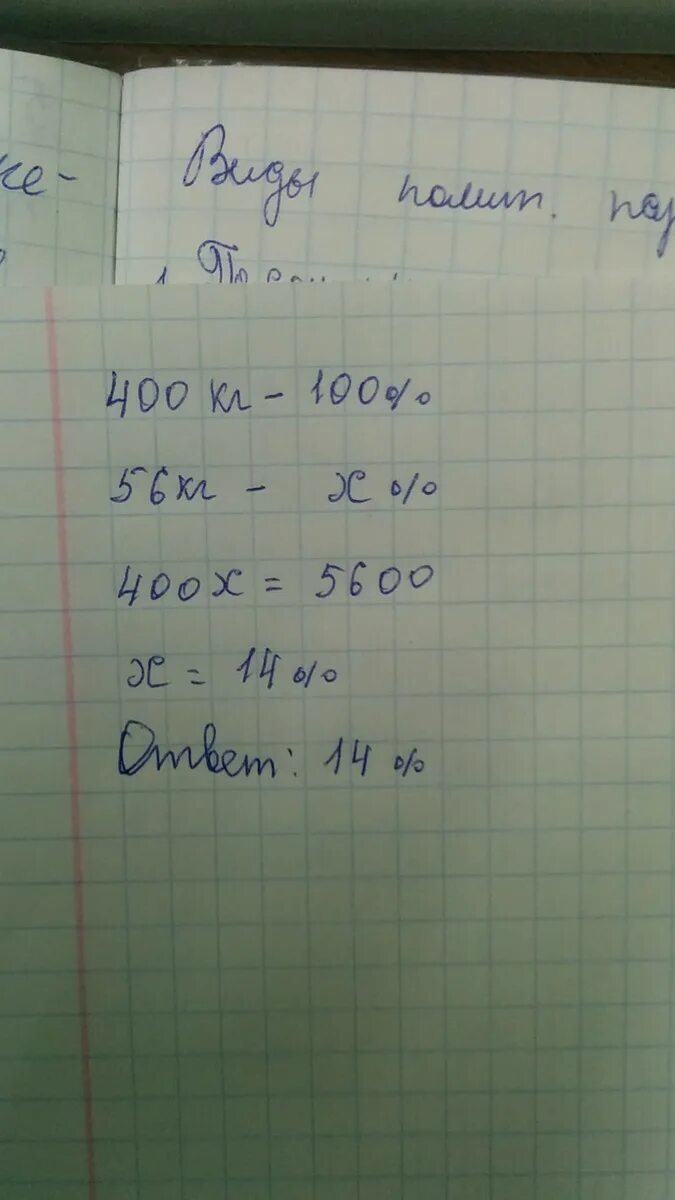 Виды полит.
400 кг - 100%
56 кг - x %
400x = 5600
x = 14 %
Ответ: 14 %